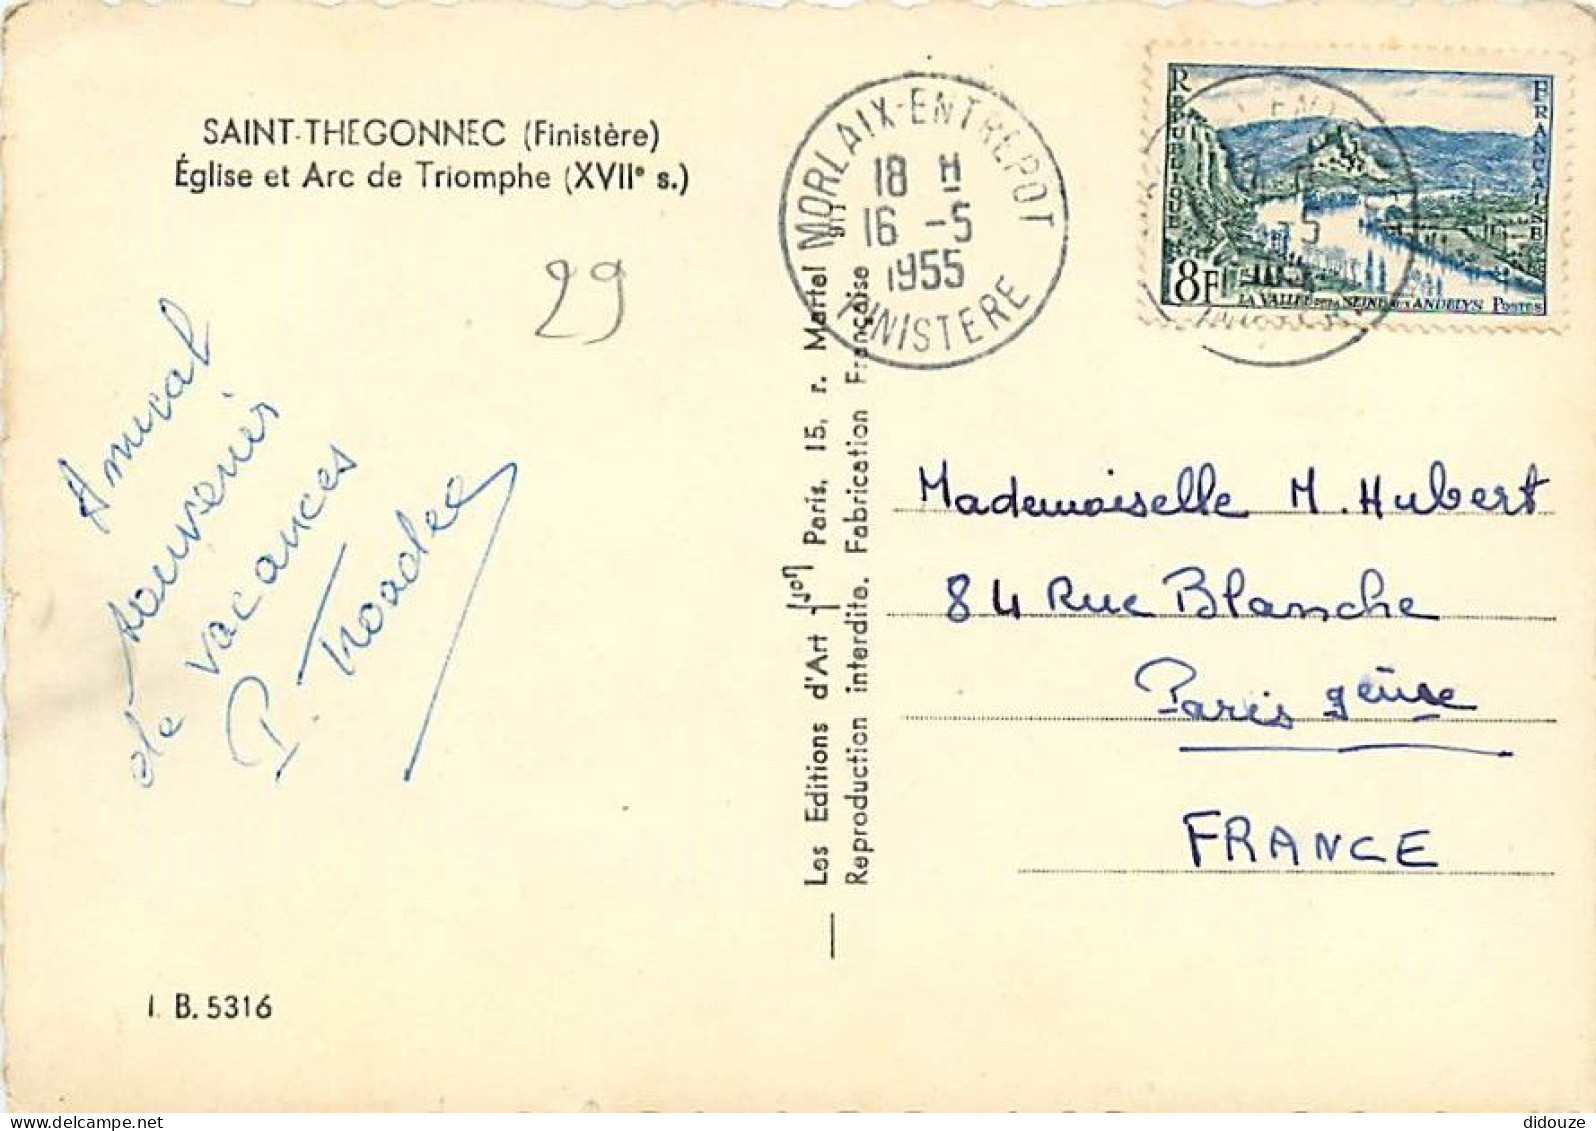 SAINT-THEGONNEC (Finistère)
Église et Arc de Triomphe (XVIIe s.)
29
Amical
souvenir
de vacances
P. Troadec
I. B. 5316
Les Editions d'Art "Jos" Paris, 15, r. Martel
Reproduction interdite. Fabrication Française
MORLAIX-ENTREPOT
18 H
16 -5
1955
FINISTERE
REPUBLIQUE
FRANÇAISE
8F
LA VALLEE DE LA SEINE AUX ANDELYS POSTES
Mademoiselle M. Hubert
84 Rue Blanche
Paris 9ème
FRANCE
delcampe.net
didouze